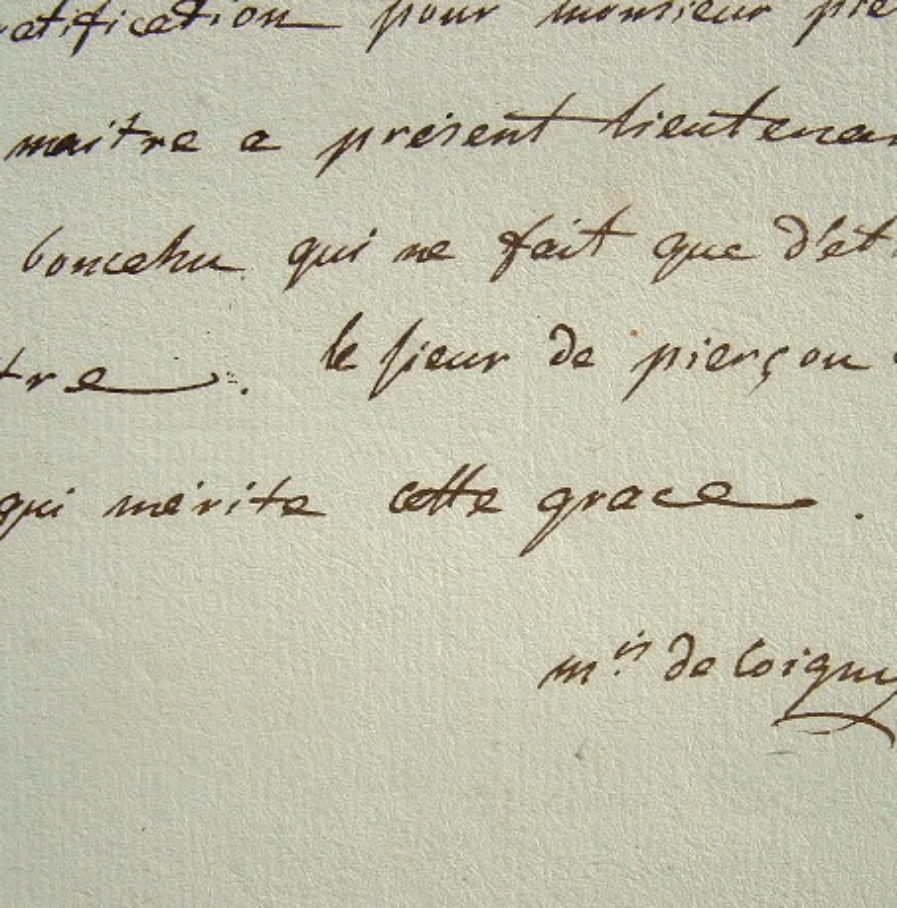 atification pour monsieur pie
maitre a présent lieutenan
qui ne fait que d'êt
tre. le sieur de pierçon
qui mérite cette grace.
mis de Coigny